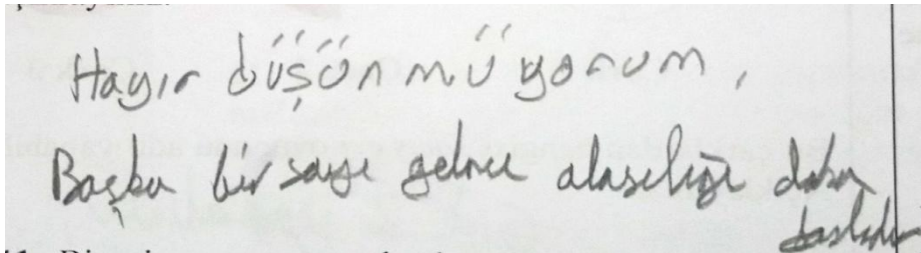 Hayır düşünmüyorum,
Başka bir sayı gelme olasılığı daha
fazladır